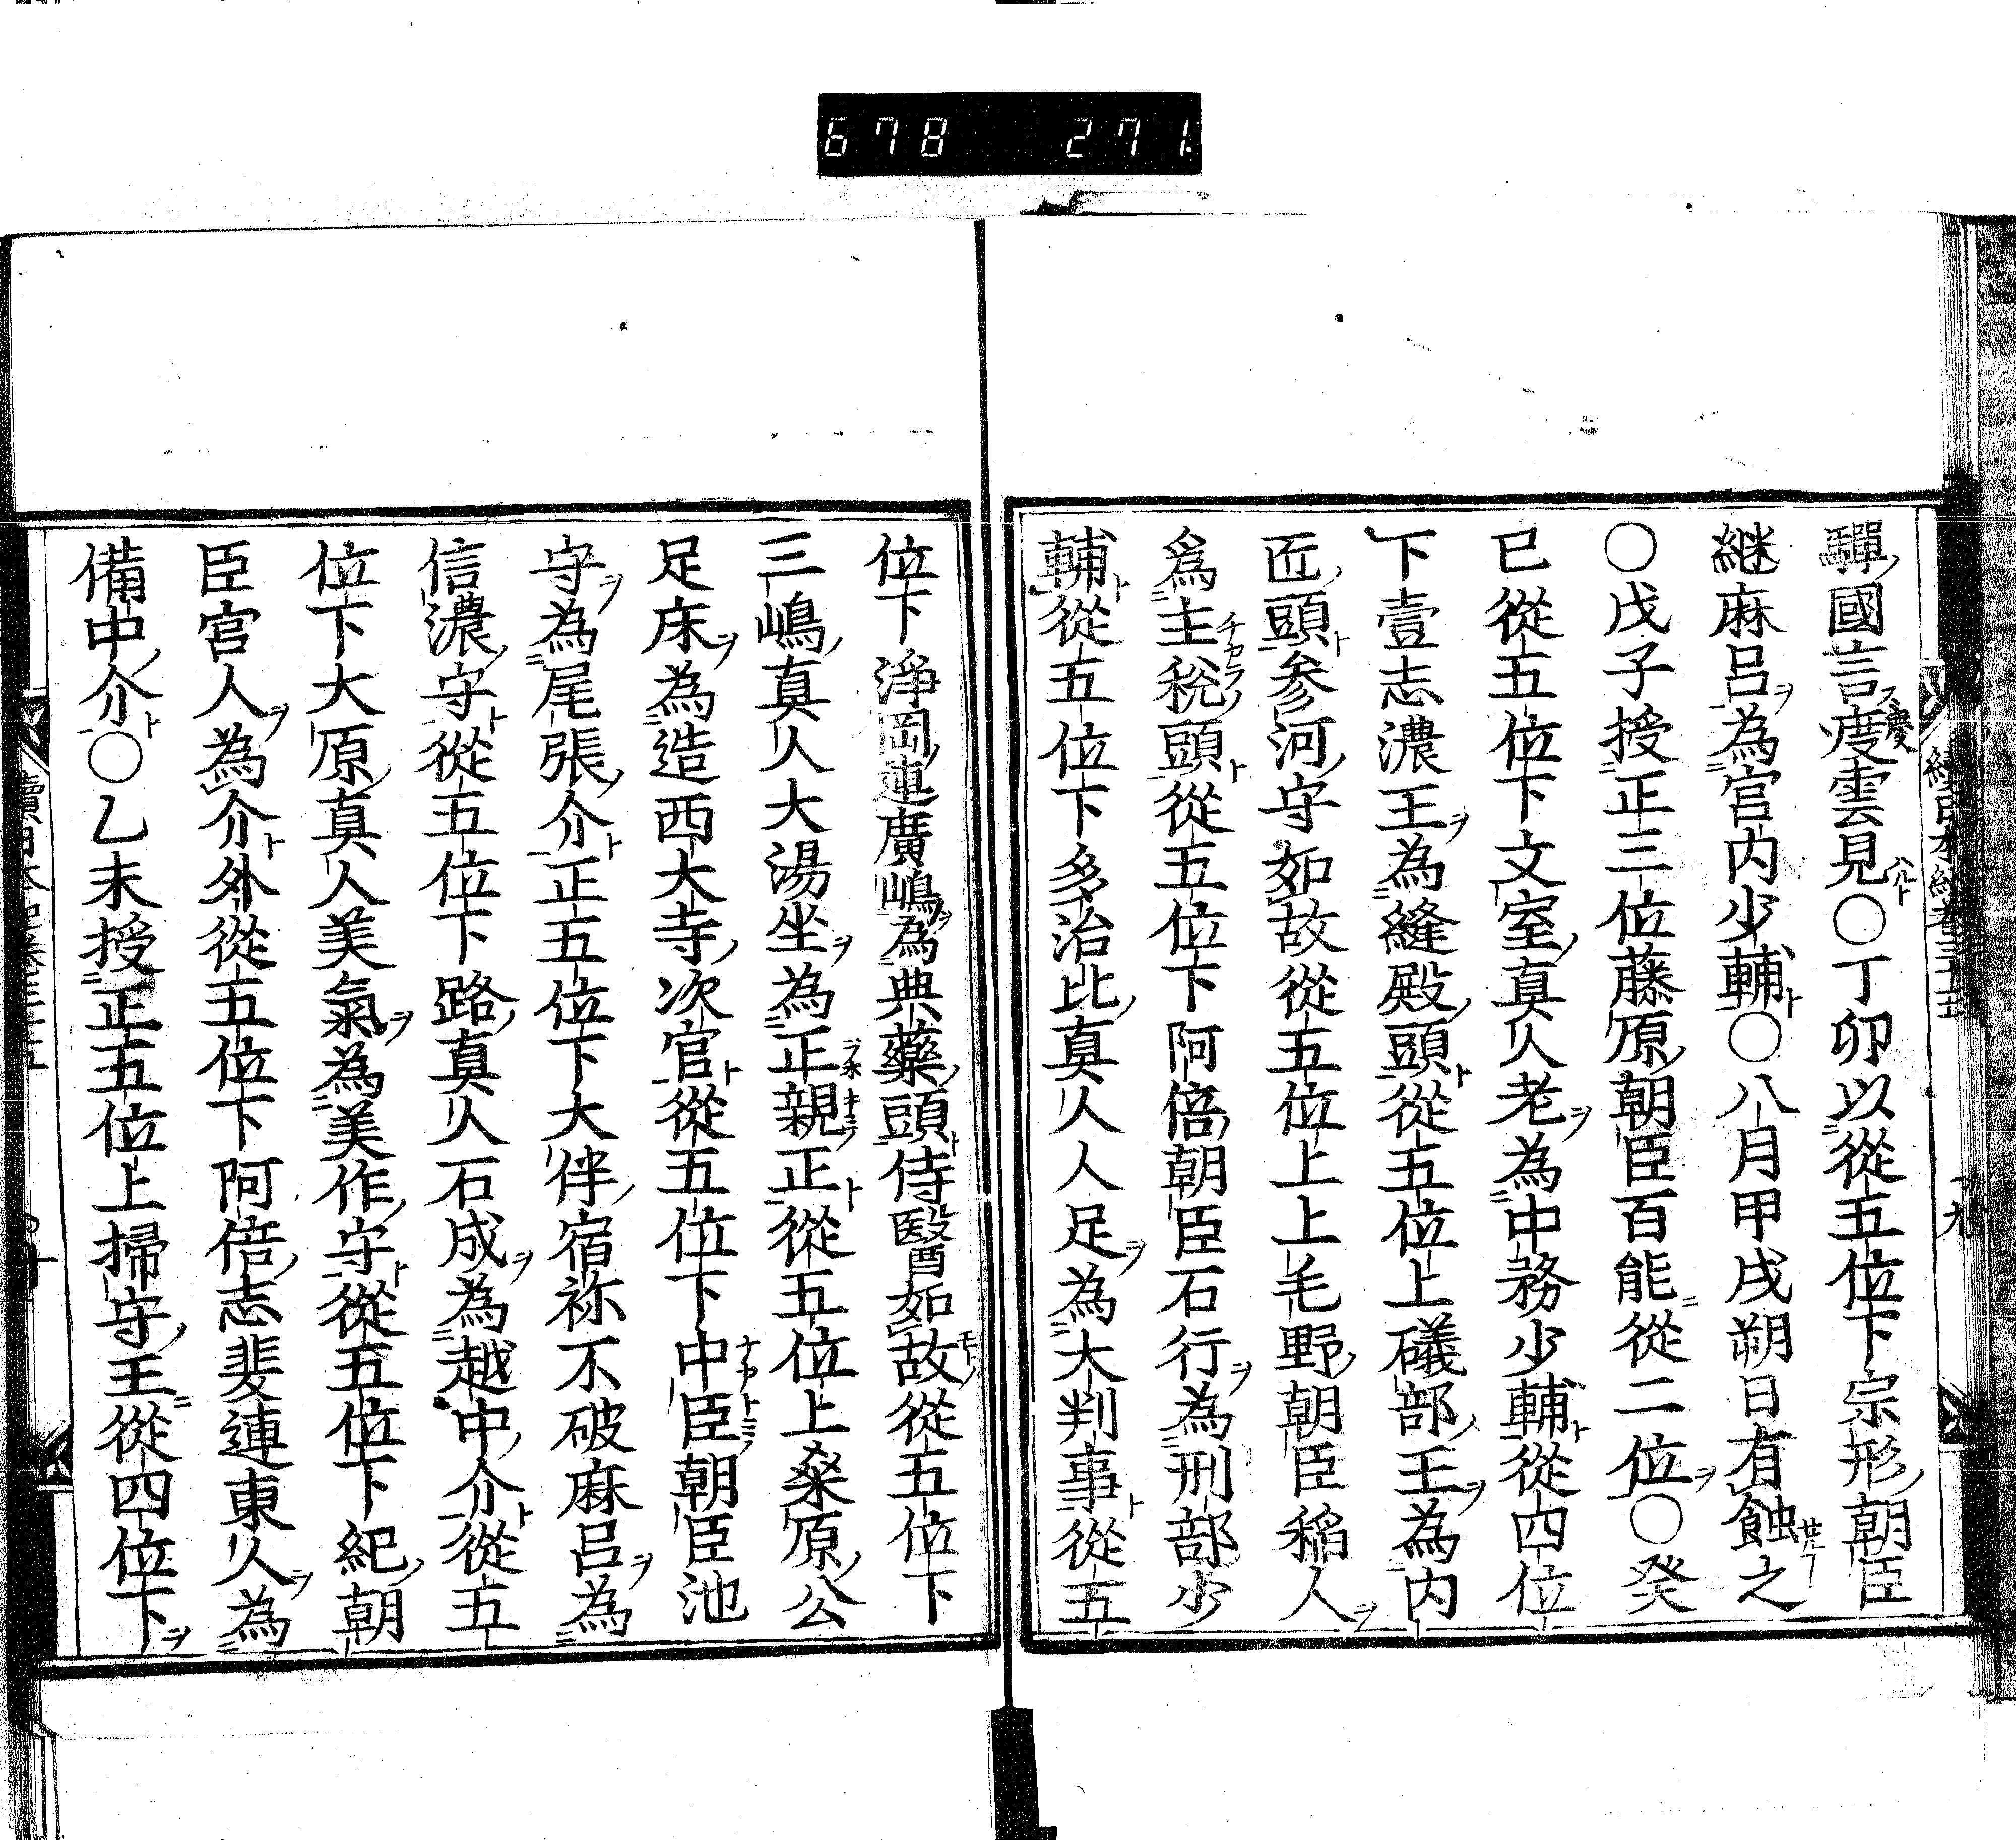 678 271
驒國言慶雲見○丁卯以從五位下宗形朝臣
継麻呂為宮内少輔○八月甲戌朔日有蝕之
○戊子授正三位藤原朝臣百能從二位○癸
巳從五位下文室真人老為中務少輔從四位
下壹志濃王為縫殿頭從五位上礒部王為内
匠頭参河守如故從五位上上毛野朝臣稲人
爲主稅頭從五位下阿倍朝臣石行為刑部少
輔從五位下多治比真人人足為大判事從五
位下淨岡連廣嶋為典藥頭侍醫如故從五位下
三嶋真人大湯坐為正親正從五位上桑原公
足床為造西大寺次官從五位下中臣朝臣池
守為尾張介正五位下大伴宿祢不破麻呂為
信濃守從五位下路真人石成為越中介從五
位下大原真人美氣為美作守從五位下紀朝
臣宮人為介外從五位下阿倍志斐連東人為
備中介○乙未授正五位上掃守王從四位下